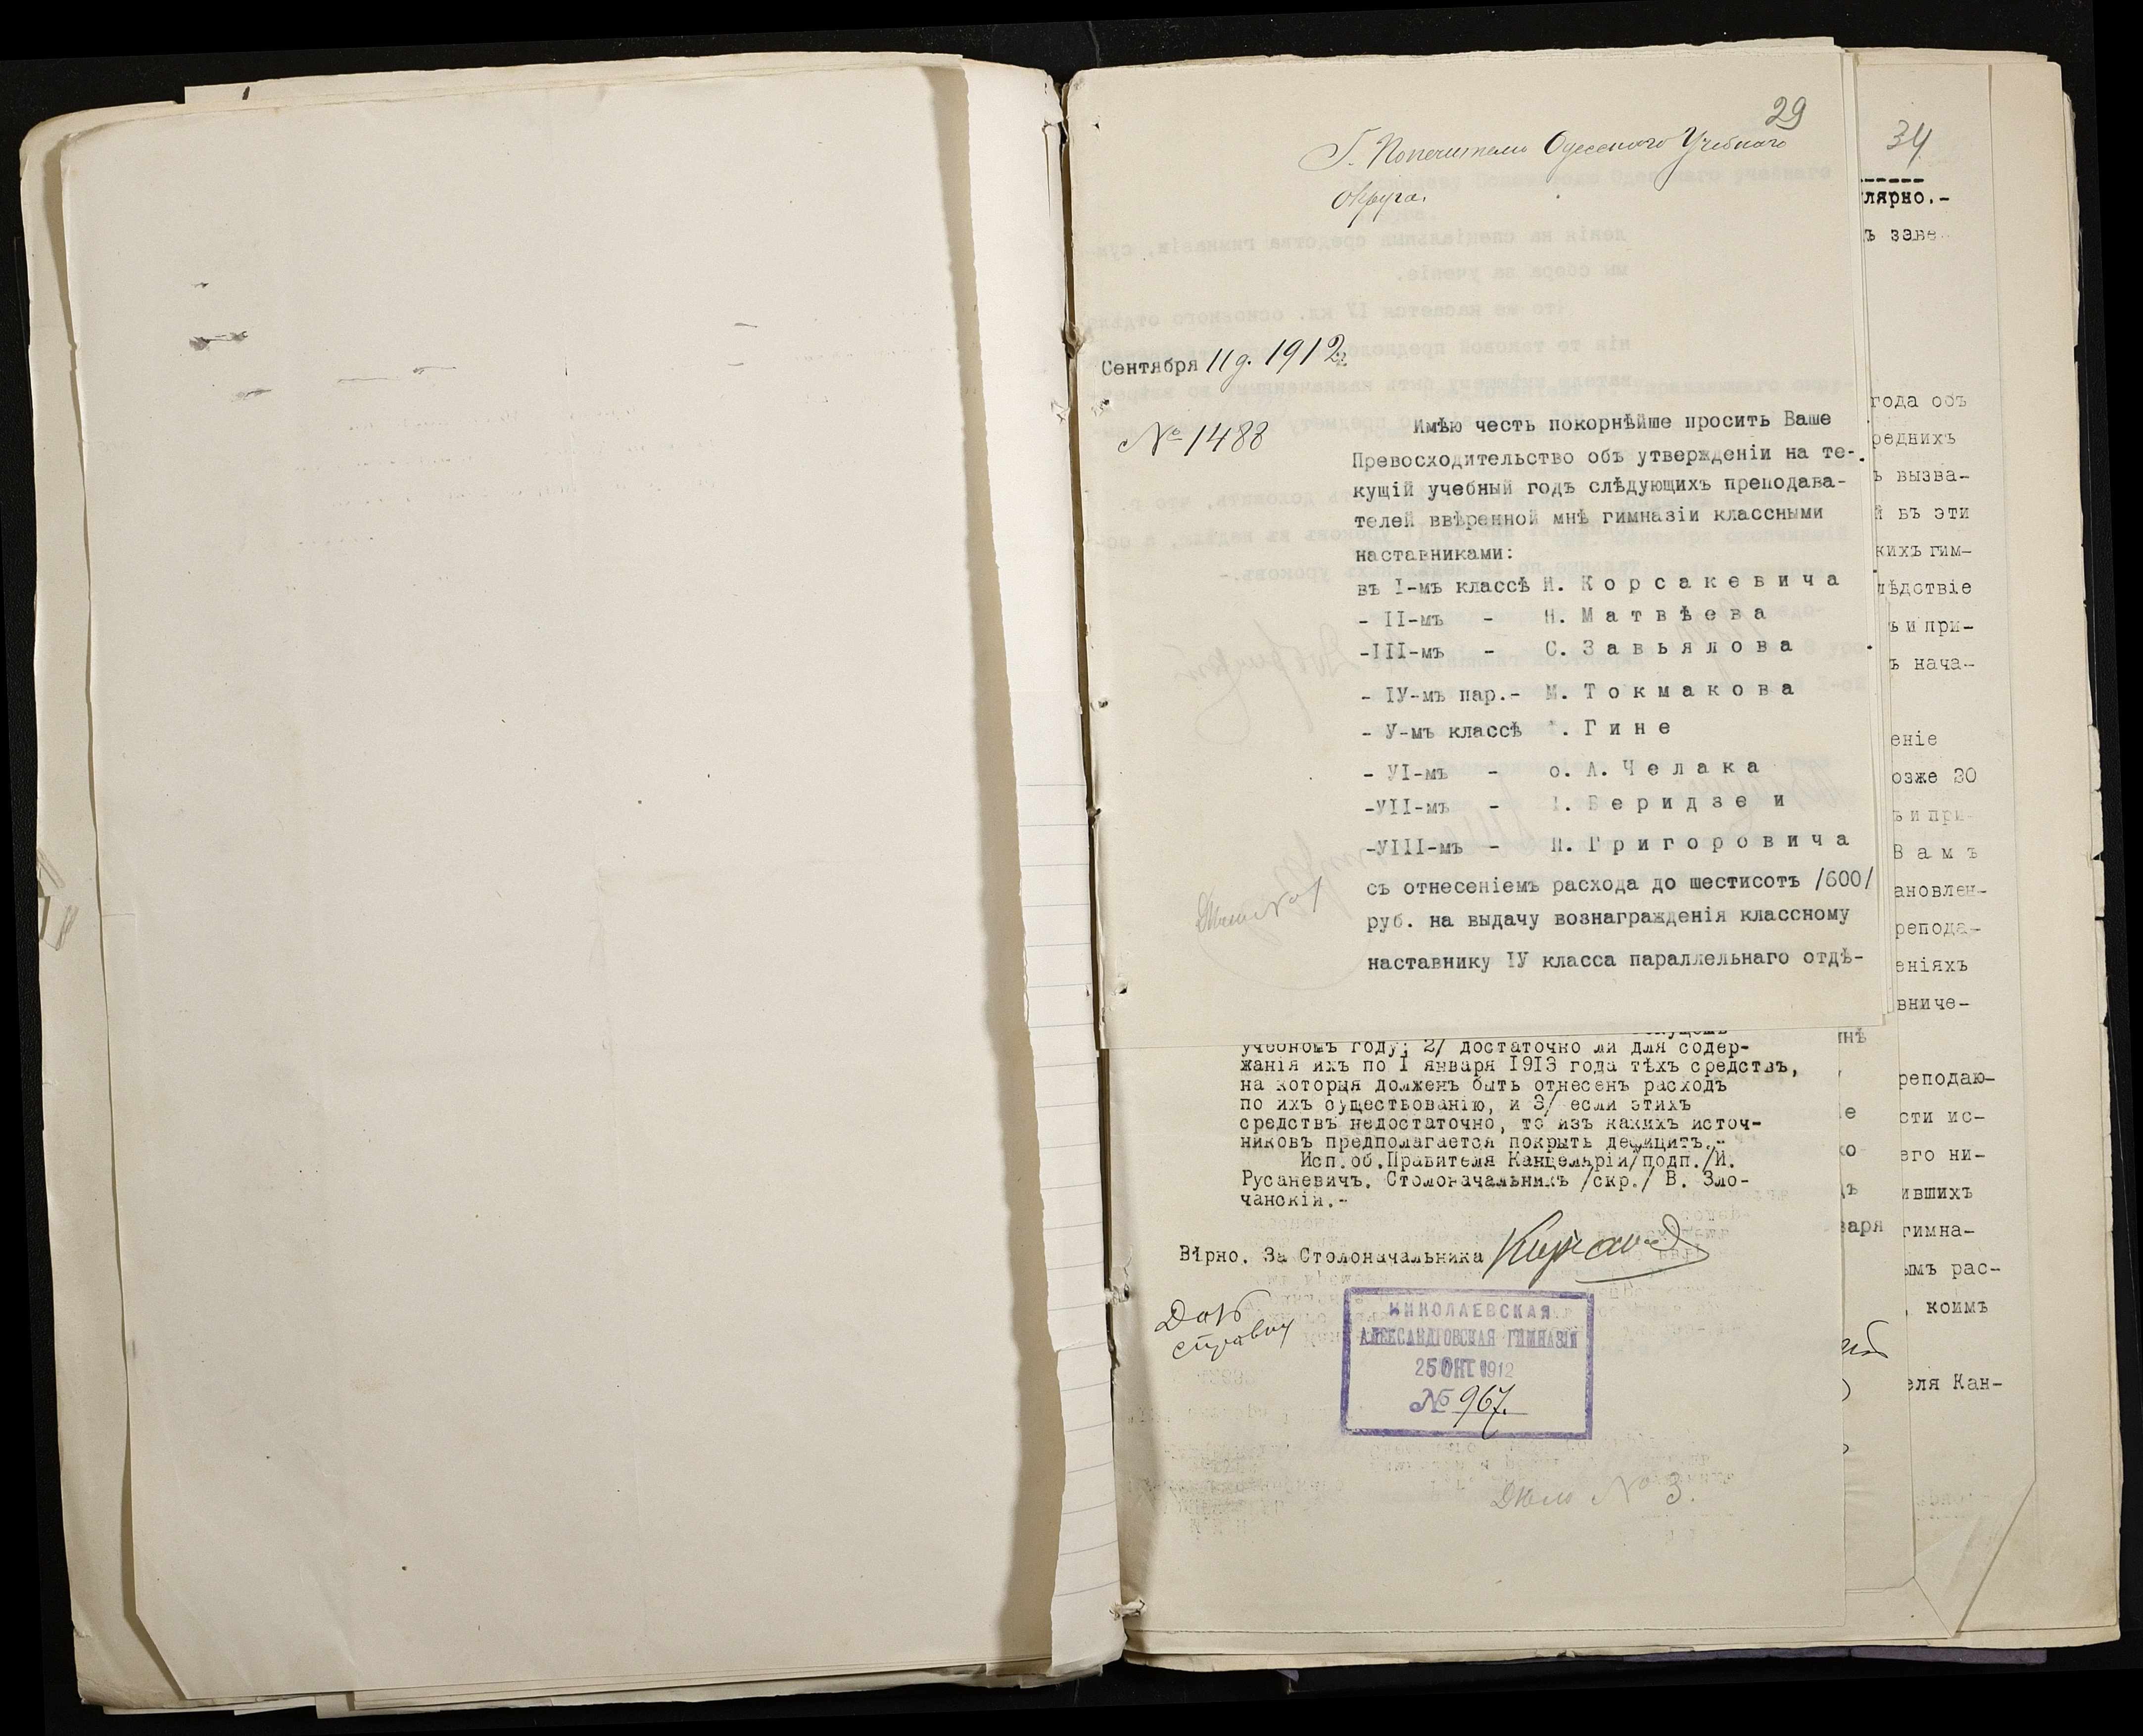 29
Г. Попечителю Одесского Учебнаго
Округа.
Сентября 11 д. 1912
№ 1488
Имѣю честь покорнѣйше просить Ваше
Превосходительство объ утвержденіи на те-
кущій учебный годъ слѣдующихъ преподава-
телей ввѣренной мнѣ гимназіи классными
наставниками:
въ I-мъ классѣ Н. Корсакевича
- II-мъ - Н. Матвѣева
-III-мъ - С. Завьялова
- IУ-мъ пар.- М. Токмакова
- У-мъ классѣ . Гине
- УI-мъ - о. А. Челака
-УII-мъ - . Беридзе и
-УIII-мъ - Н. Григоровича
съ отнесеніемъ расхода до шестисотъ /600/
руб. на выдачу вознагражденія классному
наставнику IУ класса параллельнаго отдѣ-
учебномъ году; 2/ достаточно ли для содер-
жанія ихъ по I января 1913 года тѣхъ средствъ,
на которця должень быть отнесенъ расходъ
по ихъ существованію, и 3/ если этихъ
средствъ недостаточно, то изъ какихъ источ-
никовъ предполагается покрыть дефицитъ.-
Исп.об.Правителя Канцеляріи/подп./И.
Русаневичъ. Столоначальникъ /скр./ В. Зло-
чанскій.-
Вѣрно. За Столоначальника
Дать
справку
НИКОЛАЕВСКАЯ
АЛЕКСАНДРОВСКАЯ ГИМНАЗІЯ
25 ОКТ 1912
№ 967.
Дѣло № 3.
34
лярно.-
ъ заве
года объ
реднихъ
ъ вызва-
й въ эти
кихъ гим-
лѣдствіе
ъ и при-
ъ нача-
еніе
озже 20
ъ и при-
Вамъ
ановлен-
репода-
еніяхъ
вниче-
реподаю-
сти ис-
его ни-
ившихъ
гимна-
ымъ рас-
, коимъ
еля Кан-